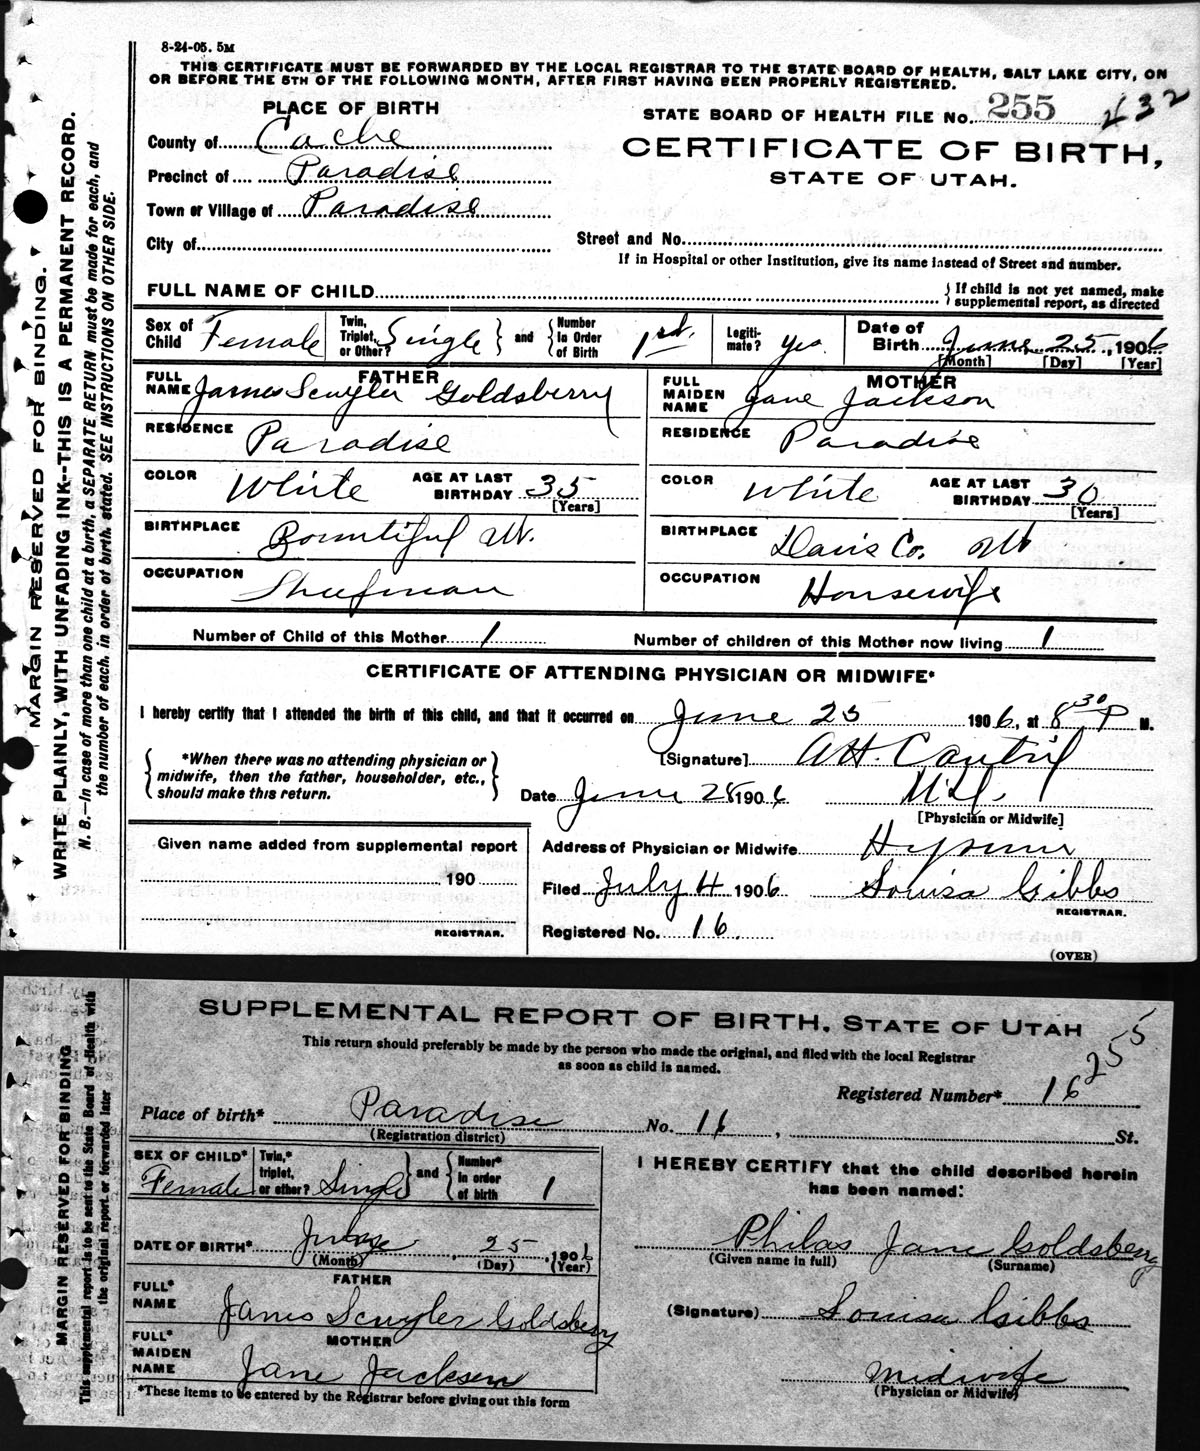 8-24-05. 5M
THIS CERTIFICATE MUST BE FORWARDED BY THE LOCAL REGISTRAR TO THE STATE BOARD OF HEALTH, SALT LAKE CITY, ON
OR BEFORE THE 5TH OF THE FOLLOWING MONTH, AFTER FIRST HAVING BEEN PROPERLY REGISTERED.
PLACE OF BIRTH
STATE BOARD OF HEALTH FILE No. 255 232
County of Cache
CERTIFICATE OF BIRTH,
STATE OF UTAH.
Precinct of Paradise
Town or Village of Paradise
City of
Street and No.
If in Hospital or other Institution, give its name instead of Street and number.
FULL NAME OF CHILD
If child is not yet named, make
supplemental report, as directed
Sex of Child Female Twin, Triplet, or Other? Single and Number in Order of Birth 1st. Legiti-mate? yes Date of Birth June 25, 1906
[Month] [Day] [Year]
FATHER
FULL NAME James Scuyler Goldsberry
RESIDENCE Paradise
COLOR White AGE AT LAST BIRTHDAY 35
[Years]
BIRTHPLACE Bountiful Ut.
OCCUPATION Sheepman
MOTHER
FULL MAIDEN NAME Jane Jackson
RESIDENCE Paradise
COLOR White AGE AT LAST BIRTHDAY 30
[Years]
BIRTHPLACE Davis Co. Ut
OCCUPATION Housewife
Number of Child of this Mother 1 Number of children of this Mother now living 1
CERTIFICATE OF ATTENDING PHYSICIAN OR MIDWIFE*
I hereby certify that I attended the birth of this child, and that it occurred on June 25 1906, at 8 30 P M.
*When there was no attending physician or
midwife, then the father, householder, etc.,
should make this return.
[Signature] A H. Cantril
Date June 28 1906 M.D.
[Physician or Midwife]
Given name added from supplemental report
190
REGISTRAR.
Address of Physician or Midwife Hyrum
Filed July 4 1906 Louisa Gibbs
REGISTRAR.
Registered No. 16.
(OVER)
MARGIN RESERVED FOR BINDING.
WRITE PLAINLY, WITH UNFADING INK--THIS IS A PERMANENT RECORD.
N. B.--In case of more than one child at a birth, a SEPARATE RETURN must be made for each, and
the number of each. in order of birth. stated. SEE INSTRUCTIONS ON OTHER SIDE.
SUPPLEMENTAL REPORT OF BIRTH, STATE OF UTAH
This return should preferably be made by the person who made the original, and filed with the local Registrar
as soon as child is named.
255
Registered Number* 16
Place of birth* Paradise No. 16, St.
(Registration district)
SEX OF CHILD* Female Twin,* triplet, or other? Single and Number* in order of birth 1
DATE OF BIRTH* June, 25, 1906
(Month) (Day) (Year)
FATHER
FULL* NAME James Scuyler Goldsberry
MOTHER
FULL* MAIDEN NAME Jane Jackson
*These items to be entered by the Registrar before giving out this form
I HEREBY CERTIFY that the child described herein
has been named:
Philas Jane Goldsberry
(Given name in full) (Surname)
(Signature) Louisa Gibbs
Midwife
(Physician or Midwife)
MARGIN RESERVED FOR BINDING
This supplemental report is to be sent to the State Board of Health with
the original report or forwarded later